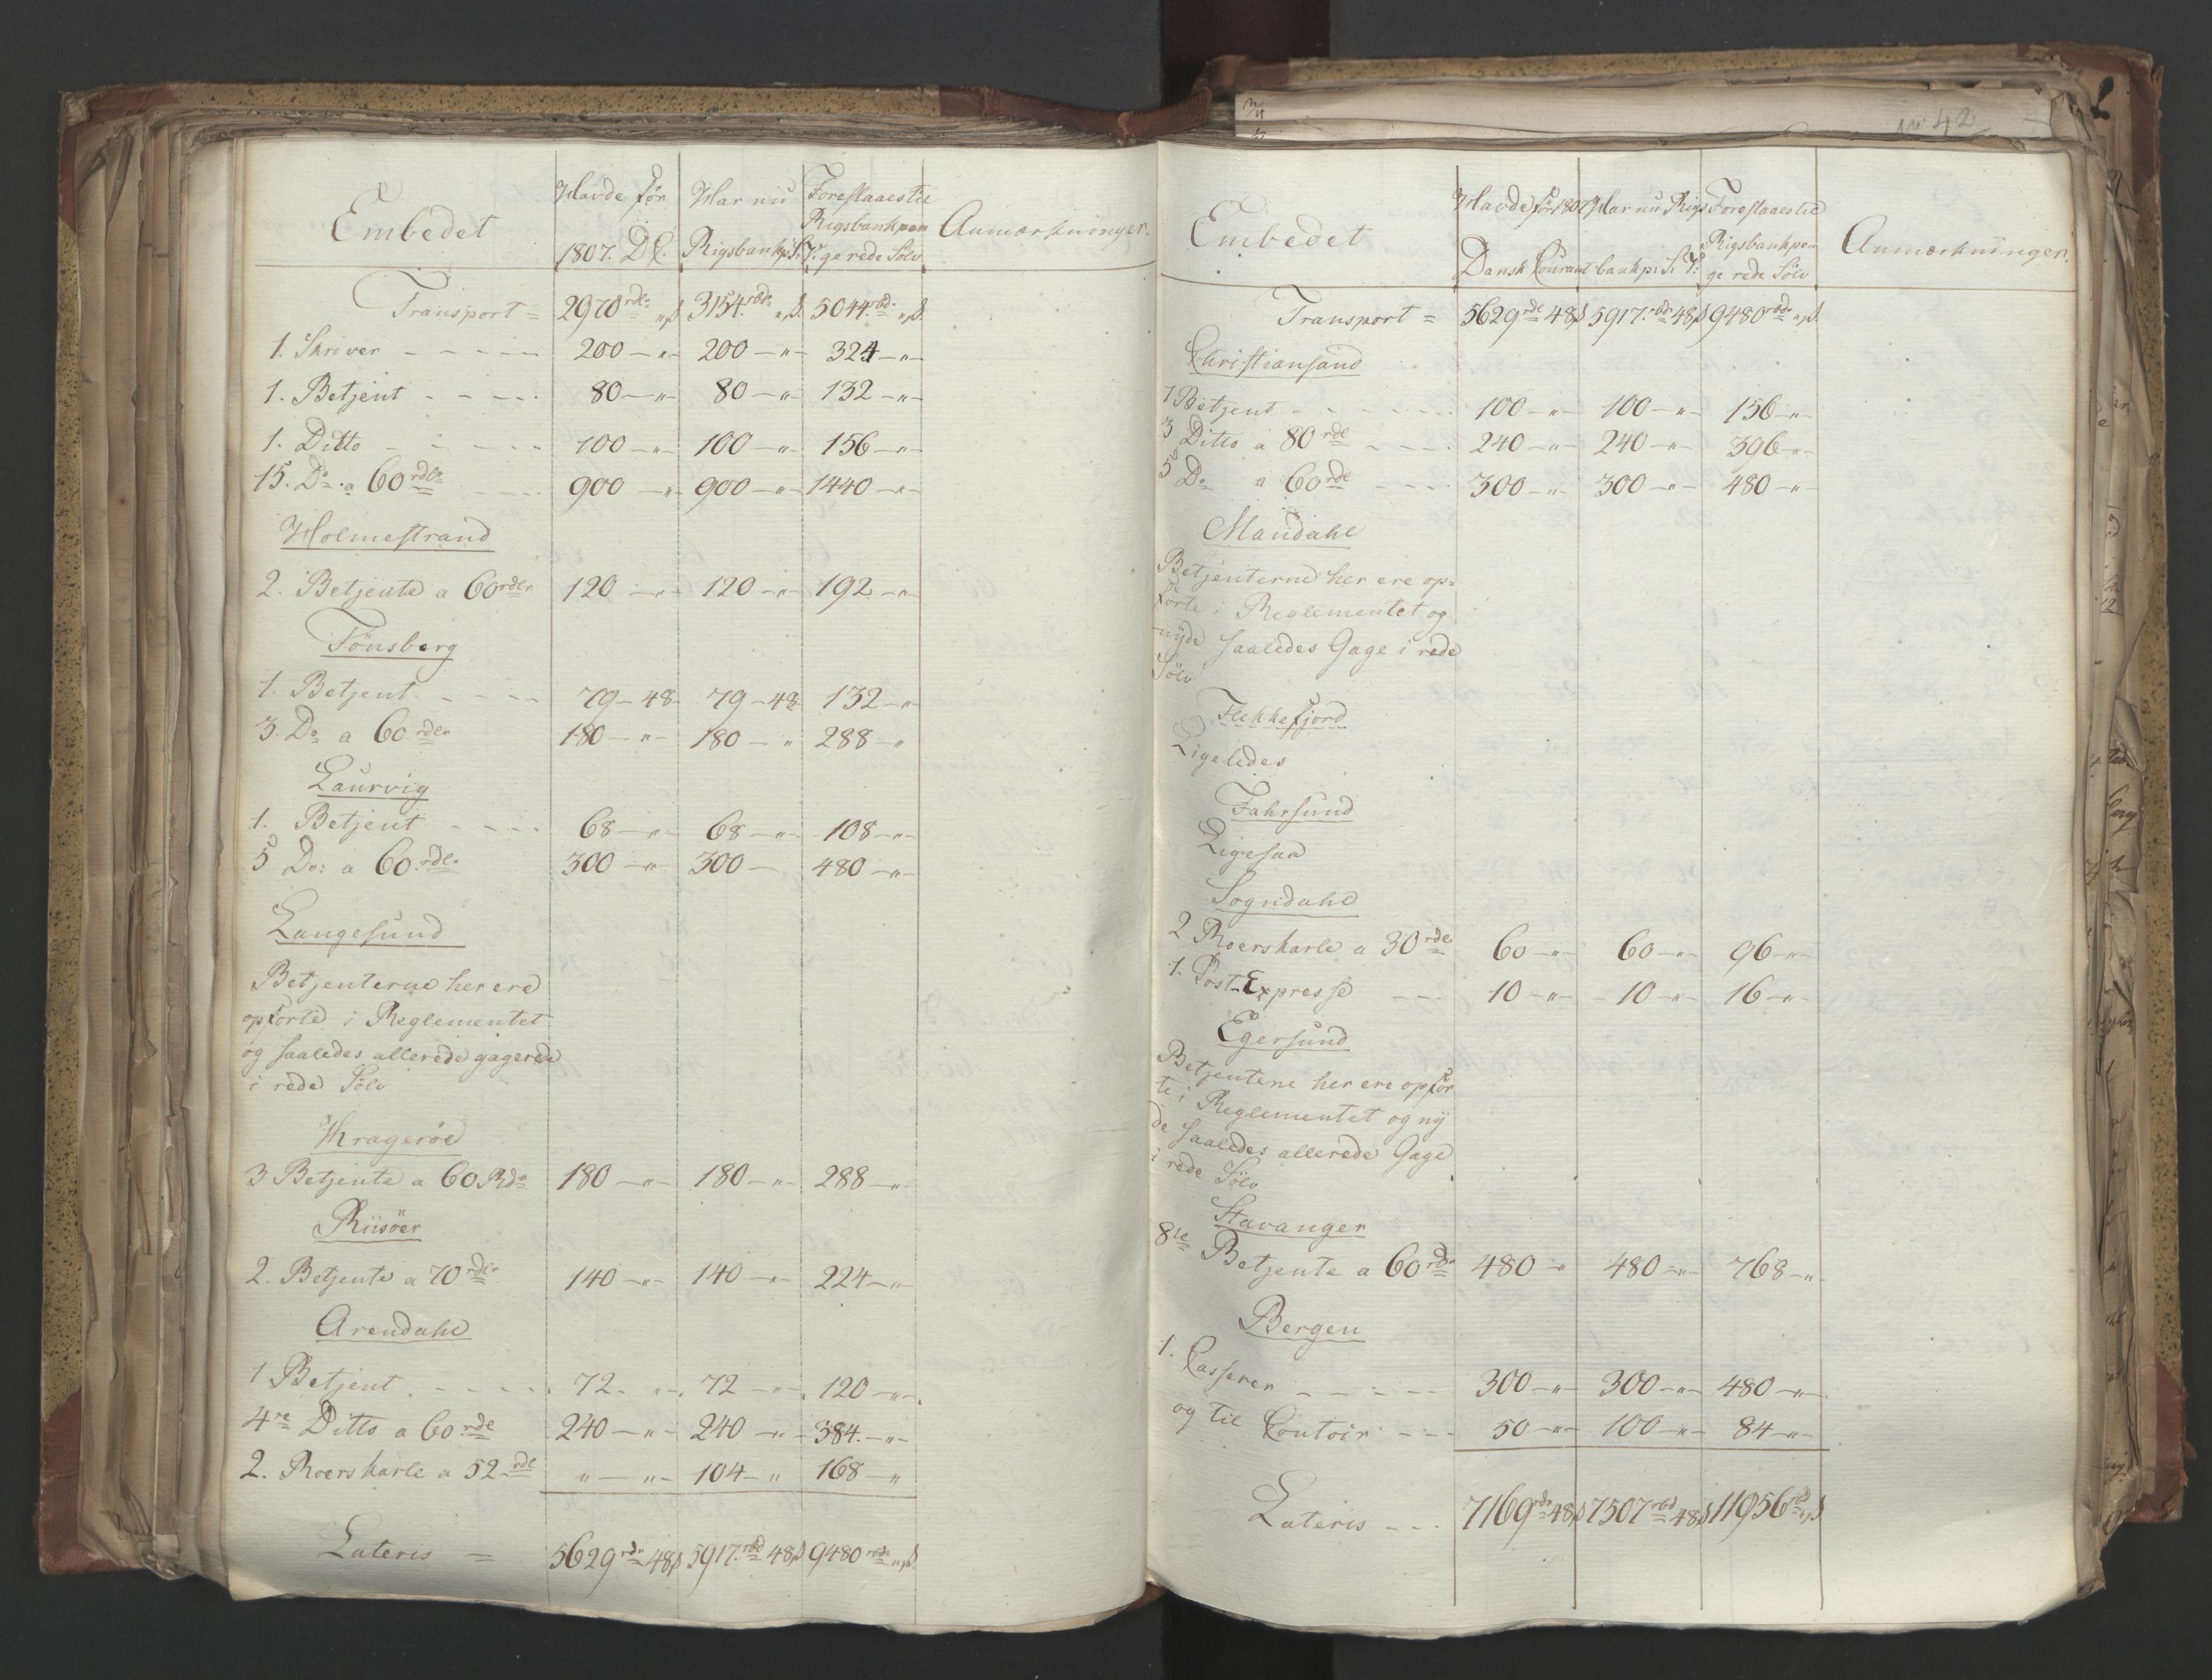 Embedet
Havde før 1807. D C.
Har nu Rigsbankp: S: V:
Foreslaaes til Rigsbankpenge rede Sölv
Anmærkninger.
Transport = 2970 rdr „ ß 3154. rbdr „ ß. 5044. rbd. „ ß.
1. Skriver - - - - 200 — „ — 200 — „ — 324 — „ —
1. Betjent - - - - 80 — „ — 80 — „ — 132 — „ —
1. Ditto - - - - 100 — „ — 100 — „ — 156 — „ —
15. Do. a 60 rdlr - - 900 — „ — 900 — „ — 1440 — „ —
Holmestrand
2. Betjente a 60 rdlr 120 — „ — 120 — „ — 192 — „ —
Tönsberg
1. Betjent - - - - 79 — 48 - 79 — 48 132 — „ —
3. Do a 60 rdlr 180 — „ — 180 — „ 288 — „
Laurvig
1. Betjent - - - - 68 — „ — 68 — „ — 108 — „ —
5 Do: a 60 rdlr 300 — „ — 300 — 480 — „ —
Langesund
Betjenterne her ere
opförte i Reglementet
og saaledes allerede gagerede
i rede Sölv
Krageröe
3 Betjente a 60 Rdr 180 — „ — 180 — „ — 288 — „ —
Riisöer
2. Betjente a 70 rdlr 140 — „ — 140 — „ — 224 — „ —
Arendahl
1 Betjent. - - - - 72. „ —. 72 — „ —. 120 — „ —.
4re Ditto a 60 rdl 240 — „ — 240 — „ — 384. — „ —
2. Roerskarle a 52 rdl „ — „ — 104 — „ 168 — „
Lateris = 5629 rdr 48 ß 5917. rbd 48 ß 9480 rbdr „ ß.
No 42
Embedet
Havde før 1807 Dansk Courant
Har nu Rigsbankp: S: V:
Foreslaaes til Rigsbankpenge rede Sölv
Anmærkninger.
Transport = 5629 rdl 48 ß 5917. rbdr 48 ß 9480 rbdr „ ß.
Christiansand
1 Betjent - - - - 100 — „ — 100 — „ — 156 — „ —
3 Ditto a 80 rdl - - - 240 — „ — 240 — „ — 396 — „ —
5 Do a 60 rdl - - - 300 — „ — 300 — „ — 480 — „ —
Mandahl
Betjenterne her ere op=
förte i Reglementet og
nyde saaledes Gage i rede
Sölv
Flekkefjord
Ligeledes
Fahrsund
Ligesaa
Sogndahl
2 Roerskarle a 30 rdl 60 — „ — 60 — „ — 96 — „ —
1. Post-Expresse - - - 10 — „ — - 10 — „ — 16 — „ —
Egersund
Betjentene her ere opför
te i Reglementet og ny
de saaledes allerede Gage
i rede Sölv
Stavanger
8te Betjente a 60 rdr 480 — „ 480 — „ — 768 — „ —
Bergen
1. Casserer - - - - 300 — „ — 300 — „ — 480 — „ —
og til Contoir - - - 50 — „ — 100 — „ — 84 — „ —
Lateris - - - 7169 rdr 48 ß 7507 rbd 48 ß 11956 rbd „ ß.